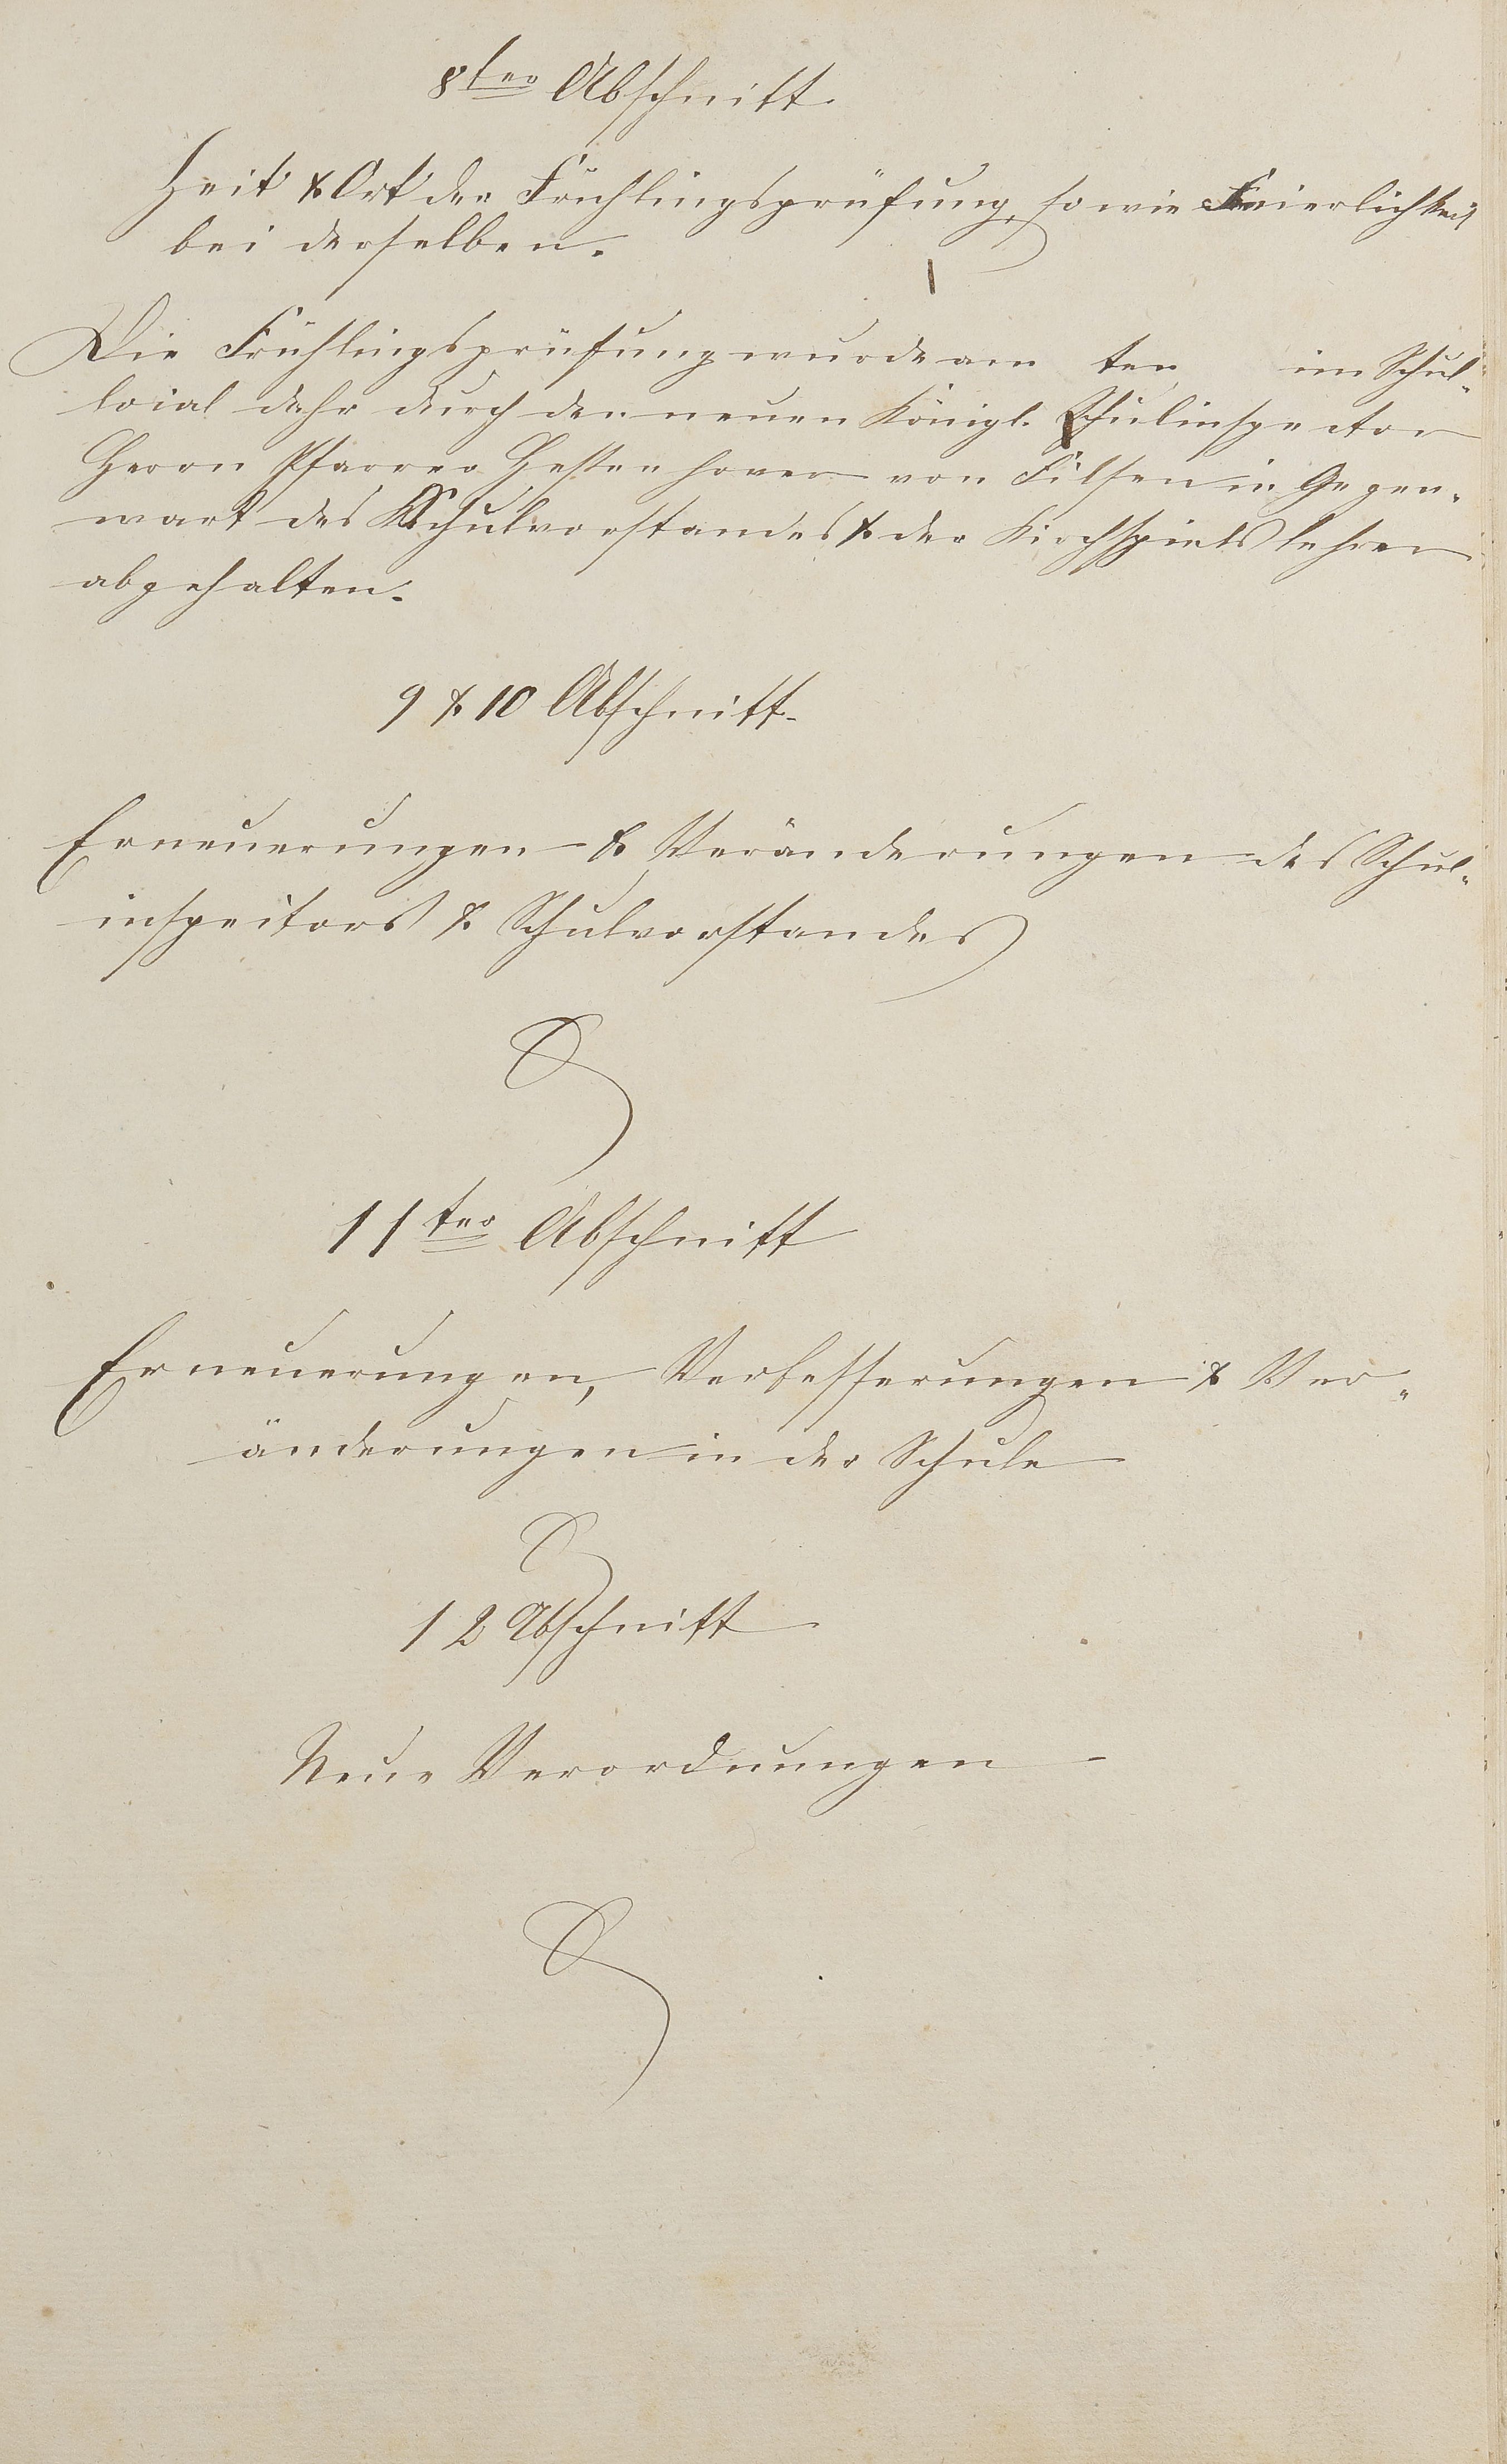 8ter Abschnitt.
Zeit & Ort der Frühlingsprüfung, so wie Feierlichkeit
bei derselben.
Die Frühlingsprüfung wurde am ten im Schul-
local dahr durch den neuen Königl. Schulinspector
Herrn Pfarrer von Filsen in Gegen-
wart des Schulvorstandes & der Kirchspielslehrer
abgehalten.
9 & 10 Abschnitt.
Erneuerungen & Veränderungen des Schul-
inspectors & Schulvorstandes
11ter Abschnitt
Erneuerungen, Verbesserungen & Ver-
änderungen in der Schule
12 Abschnitt
Neue Verordnungen